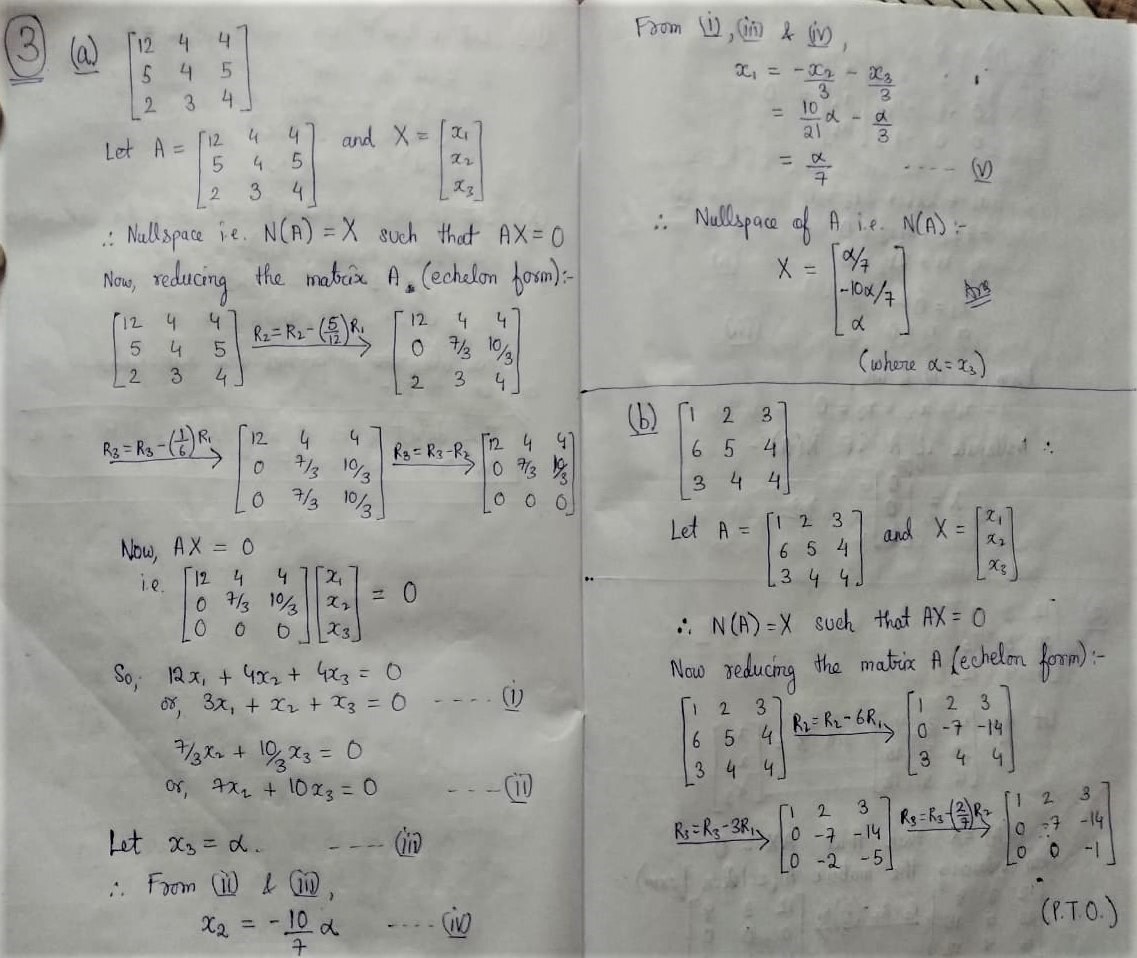 3 (a) [12 4 4; 5 4 5; 2 3 4]
Let A = [12 4 4; 5 4 5; 2 3 4] and X = [x₁; x₂; x₃]
∴ Nullspace i.e. N(A) = X such that AX = 0
Now, reducing the matrix A (echelon form):-
[12 4 4; 5 4 5; 2 3 4] R₂=R₂-(5/12)R₁ → [12 4 4; 0 7/3 10/3; 2 3 4]
R₃=R₃-(1/6)R₁ → [12 4 4; 0 7/3 10/3; 0 7/3 10/3] R₃=R₃-R₂ → [12 4 4; 0 7/3 10/3; 0 0 0]
Now, AX = 0
i.e. [12 4 4; 0 7/3 10/3; 0 0 0] [x₁; x₂; x₃] = 0
So, 12x₁ + 4x₂ + 4x₃ = 0
or, 3x₁ + x₂ + x₃ = 0 ---- (i)
7/3x₂ + 10/3x₃ = 0
or, 7x₂ + 10x₃ = 0 ---- (ii)
Let x₃ = α. ---- (iii)
∴ From (ii) & (iii),
x₂ = -10/7 α ---- (iv)
From (i), (iii) & (iv),
x₁ = -x₂/3 - x₃/3
= 10/21 α - α/3
= α/7 ---- (v)
∴ Nullspace of A i.e. N(A) :-
X = [α/7; -10α/7; α] Ans
(where α = x₃)
(b) [1 2 3; 6 5 4; 3 4 4]
Let A = [1 2 3; 6 5 4; 3 4 4] and X = [x₁; x₂; x₃]
∴ N(A) = X such that AX = 0
Now reducing the matrix A (echelon form):-
[1 2 3; 6 5 4; 3 4 4] R₂=R₂-6R₁ → [1 2 3; 0 -7 -14; 3 4 4]
R₃=R₃-3R₁ → [1 2 3; 0 -7 -14; 0 -2 -5] R₃=R₃-(2/7)R₂ → [1 2 3; 0 -7 -14; 0 0 -1]
(P.T.O.)